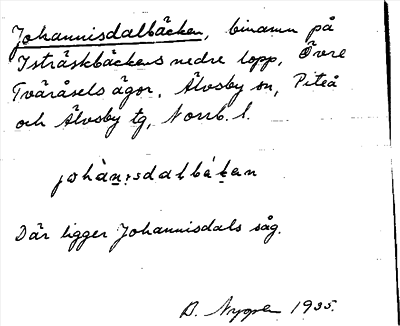 Johannisdalbäcken, binamn på
Isträskbäckens nedre lopp, Övre
Tväråsels ägor, Älvsby sn, Piteå
och Älvsby tg, Norrb. l.
johàn:sdalbá̀kan
Där ligger Johannisdals såg.
B. Nygren 1935.